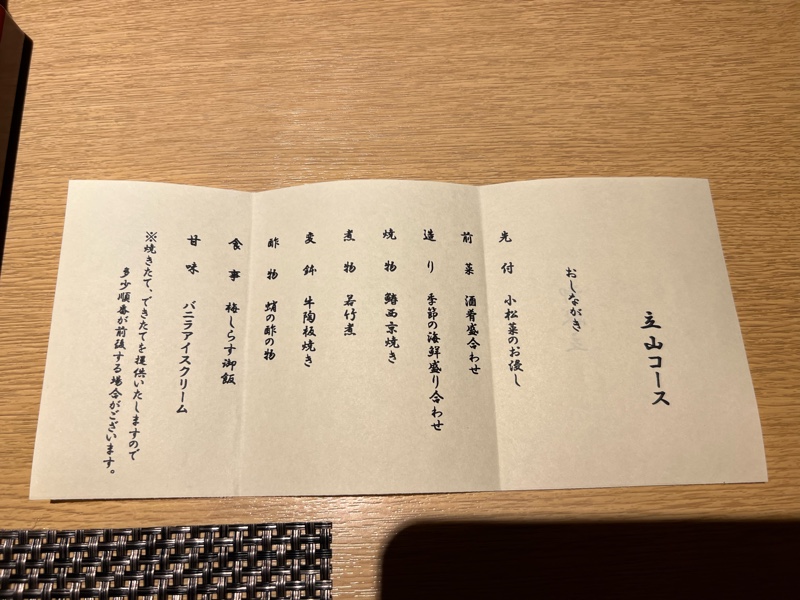 立山コース
おしながき
先付 小松菜のお浸し
前菜 酒肴盛合わせ
造り 季節の海鮮盛り合わせ
焼物 鰆西京焼き
煮物 若竹煮
変鉢 牛陶板焼き
酢物 蛸の酢の物
食事 梅しらす御飯
甘味 バニラアイスクリーム
※焼きたて、できたてを提供いたしますので
多少順番が前後する場合がございます。